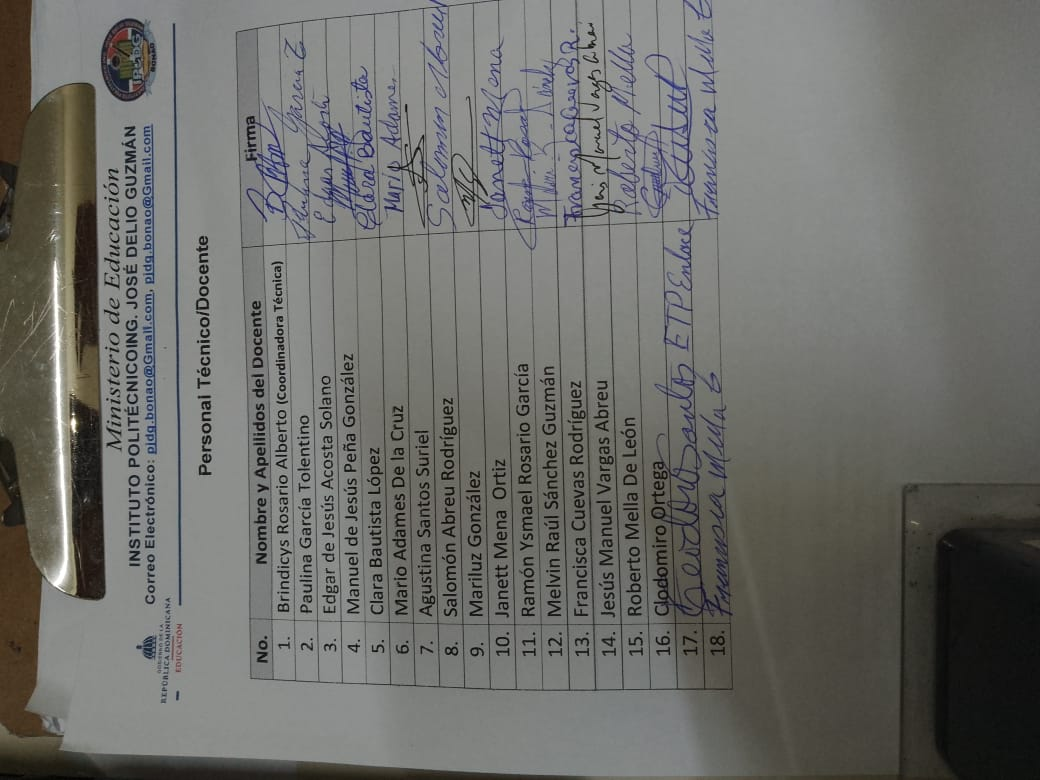 GOBIERNO DE LA
REPÚBLICA DOMINICANA
EDUCACIÓN
Ministerio de Educación
INSTITUTO POLITÉCNICOING. JOSÉ DELIO GUZMÁN
Correo Electrónico: pjdg.bonao@Gmail.com, pjdg.bonao@Gmail.com
IPJDG
BONAO
Personal Técnico/Docente
No. Nombre y Apellidos del Docente Firma
1. Brindicys Rosario Alberto (Coordinadora Técnica)
2. Paulina García Tolentino Paulina García T
3. Edgar de Jesús Acosta Solano Edgar Acosta
4. Manuel de Jesús Peña González
5. Clara Bautista López Clara Bautista
6. Mario Adames De la Cruz Mario Adames
7. Agustina Santos Suriel
8. Salomón Abreu Rodríguez Salomón Abreu
9. Mariluz González
10. Janett Mena Ortiz Janett Mena
11. Ramón Ysmael Rosario García
12. Melvin Raúl Sánchez Guzmán
13. Francisca Cuevas Rodríguez Francisca Cuevas R.
14. Jesús Manuel Vargas Abreu Manuel Vargas Abreu
15. Roberto Mella De León Roberto Mella
16. Clodomiro Ortega
17. Santos ETP Enlace
18.